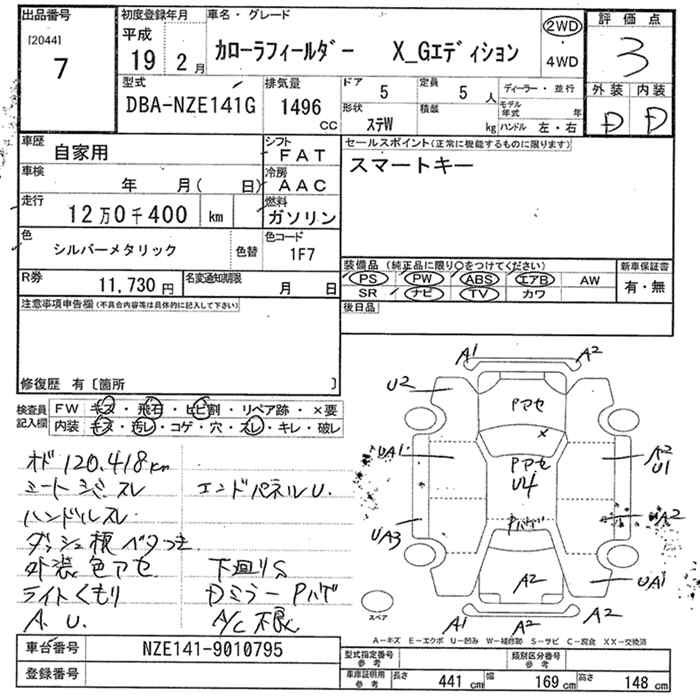 出品番号
[2044]
7
初度登録年月
平成
19 2 月
車名・グレード
カローラフィールダー X_Gエディション
2WD
4WD
評価点
3
外装 内装
D D
型式
DBA-NZE141G
排気量
1496
CC
ドア
5
定員
5 人
形状
ステW
積載
kg
ディーラー・並行
モデル年式 年
ハンドル 左・右
車歴
自家用
車検
年 月( 日)
走行
12万0千400 km
色
シルバーメタリック
色替
シフト
FAT
冷房
AAC
燃料
ガソリン
色コード
1F7
R券
11,730 円
名変通知期限
月 日
セールスポイント(正常に機能するものに限ります)
スマートキー
装備品(純正品に限り○をつけてください)
PS PW ABS エアB AW
SR ナビ TV カワ
新車保証書
有・無
後日品
注意事項申告欄(不具合内容等は具体的に記入して下さい)
修復歴 有〔箇所 〕
検査員記入欄
FW キズ・飛石・ヒビ割・リペア跡・×要
内装 キズ・汚レ・コゲ・穴・スレ・キレ・破レ
オド 120,418km
シートシミ スレ
ハンドルスレ
ダッシュ板ベタつき
外装色アセ
ライトくもり
A. U.
エンドパネルU.
下廻りS
Dミラー Pハゲ
A/C不良
A1 A2
U2
Pアセ
×
UA1
Pアセ
U4
A2
U1
UA3
Pハゲ
UA2
A2
UA1
A1 A2 A2
スペア
A－キズ E－エクボ U－凹み W－補修跡 S－サビ C－腐食 XX－交換済
車台番号
NZE141-9010795
登録番号
型式指定番号
参考
類別区分番号
参考
車庫証明用
参考
長さ 441 cm 幅 169 cm 高さ 148 cm